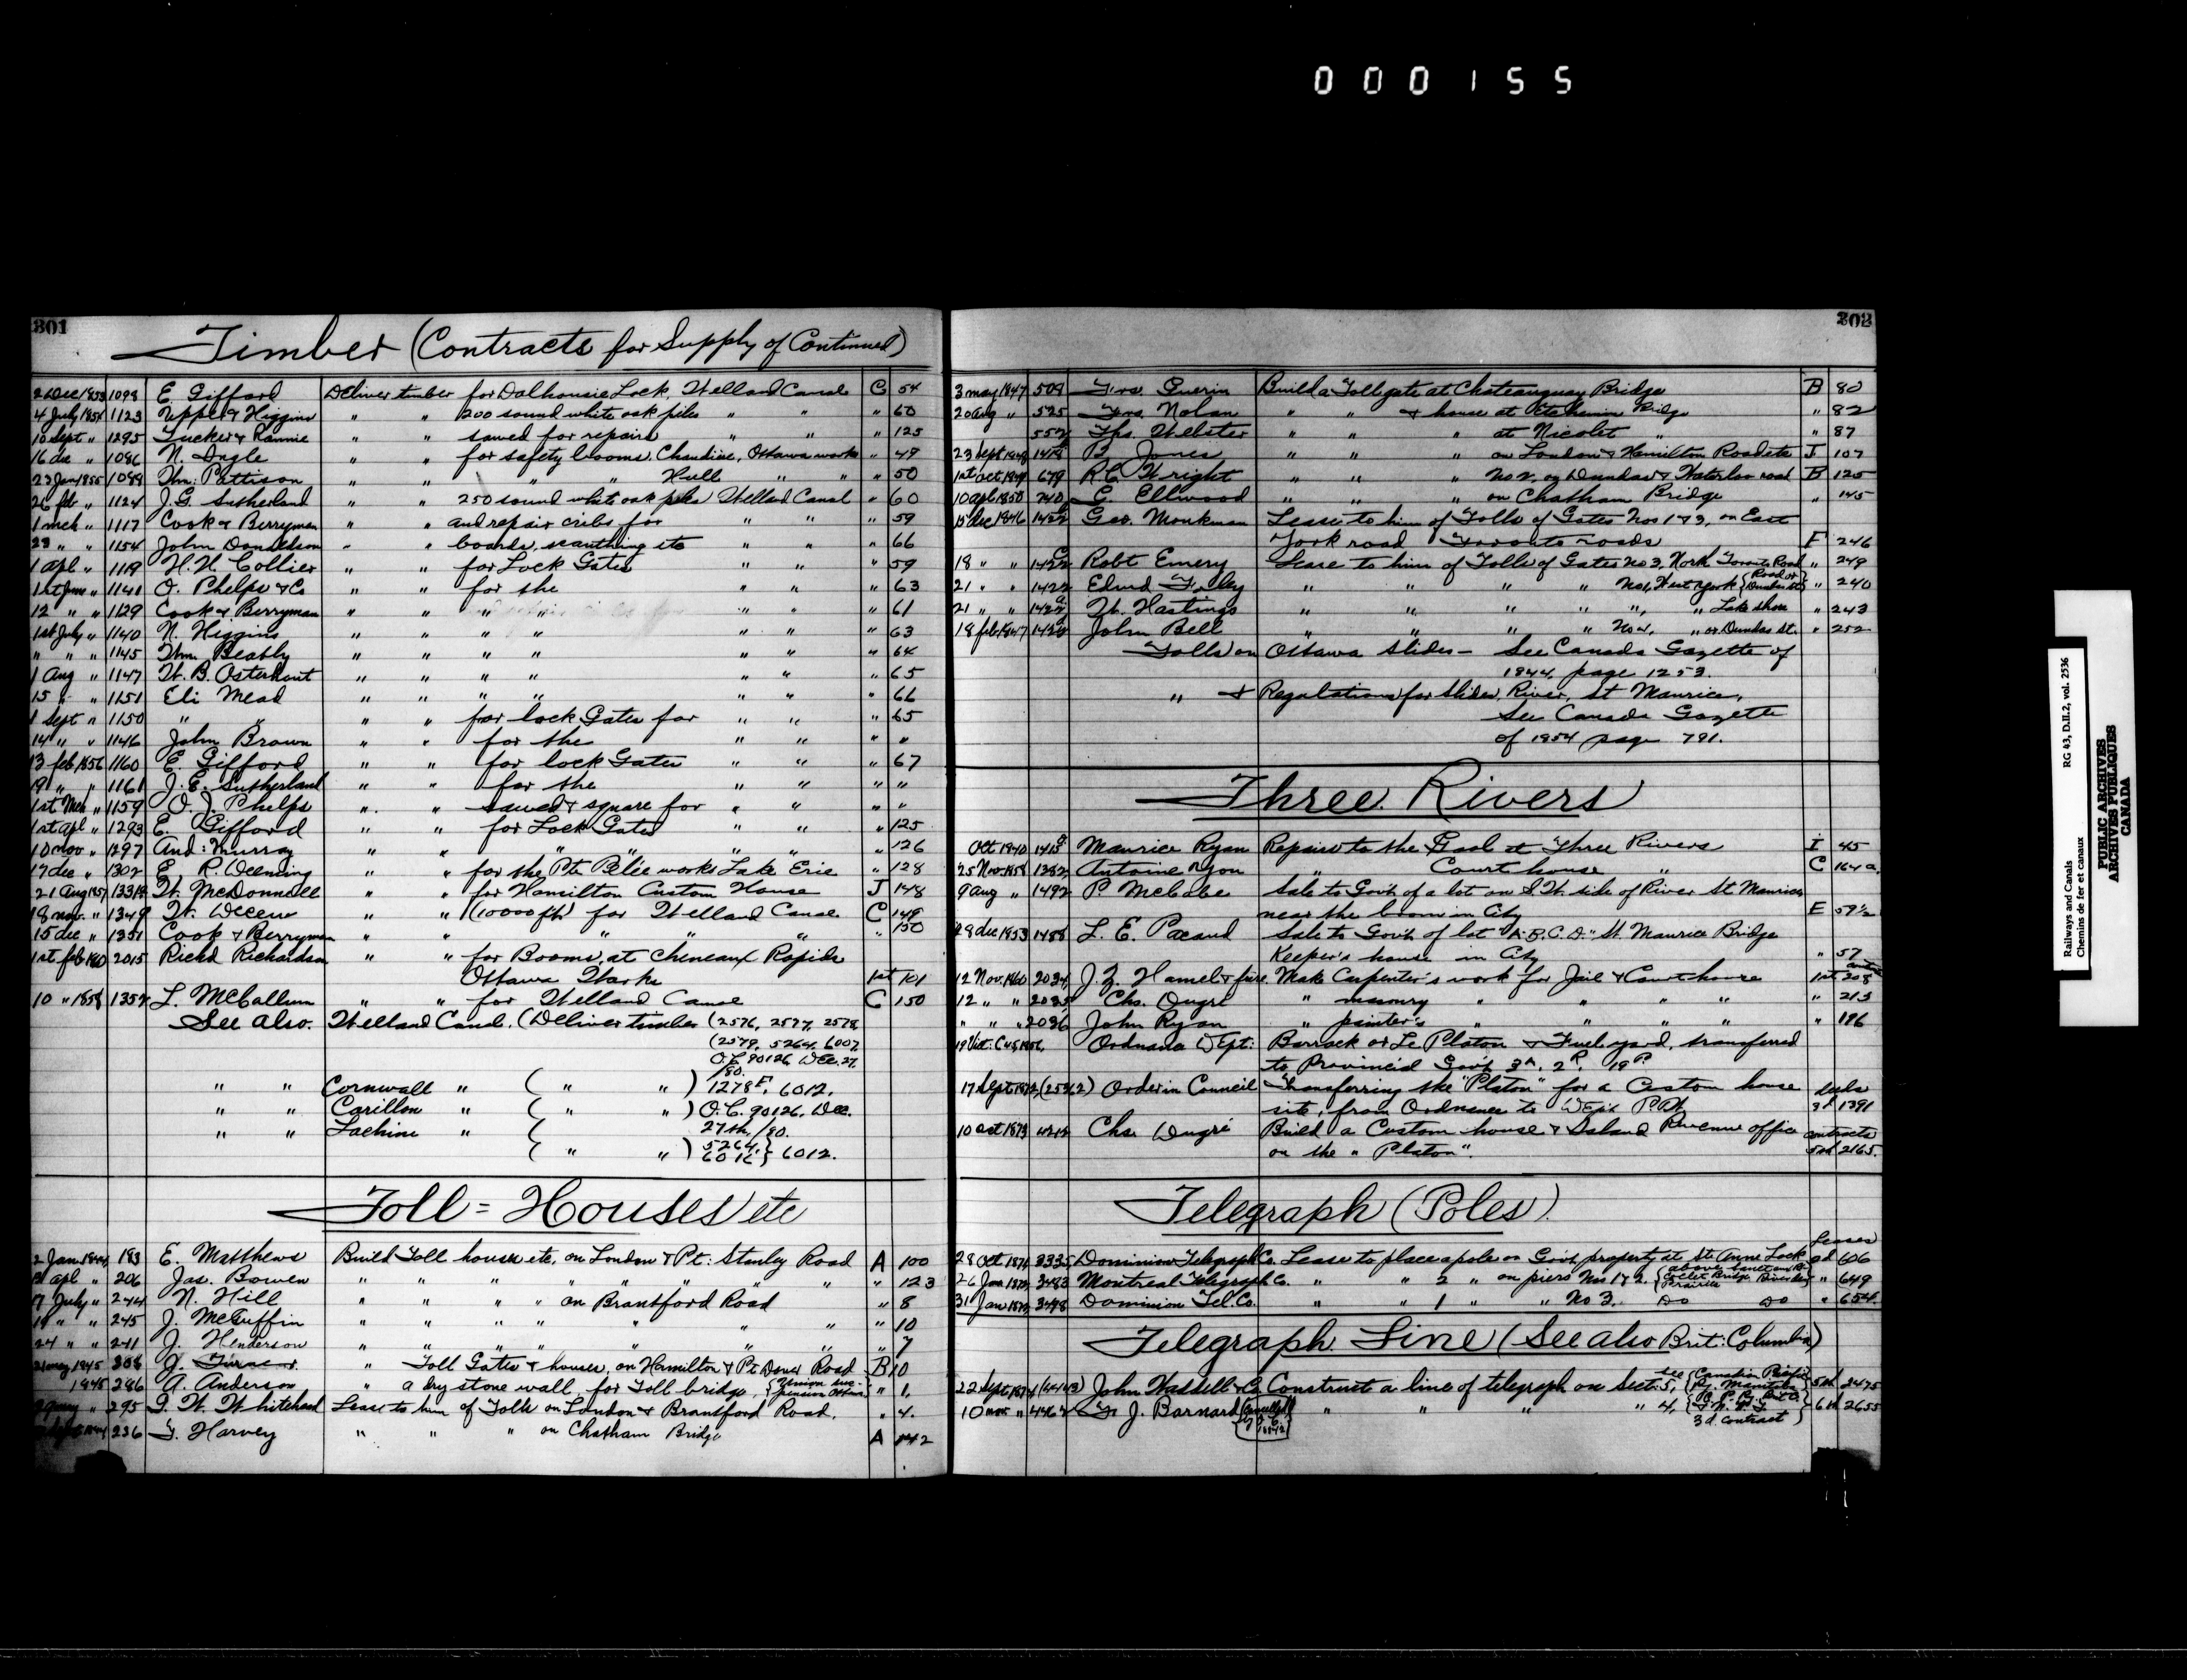 000155
301
Timber (Contracts for Supply of Continued)
2 Dec 1853 1098 E. Gifford Deliver timber for Dalhousie Lock, Welland Canal C 54
4 July 1854 1123 Upper & Higgins " " 200 sound white oak piles " " " 60
10 Sept " 1295 Tucker & Rannie " " sawed for repairs " " " 125
16 dec " 1086 N. Ingle " " for safety booms, Chaudière, Ottawa works " 49
23 Jan 1855 1099 Wm: Pattison " " " " Hull " " " 50
26 feb " 1124 J.G. Sutherland " " 250 sound white oak piles Welland Canal " 60
1 mch " 1117 Cook & Berryman " " and repair cribs for " " " 59
23 " " 1154 John Donaldson " " boards, scantling etc " " " 66
1 apl " 1119 H.H. Collier " " for Lock Gates " " " 59
1st June " 1141 O. Phelps & Co " " for the " " " 63
12 " " 1129 Cook & Berryman " " " " " " " 61
1st July " 1140 N. Higgins " " " " " " " 63
" " " 1145 Wm. Beatly " " " " " " " 64
1 Aug " 1147 W. B. Osterhout " " " " " " " 65
15 " " 1151 Eli Mead " " " " " " " 66
1 Sept " 1150 " " " " for lock Gates for " " " 65
14 " " 1146 John Brown " " for the " " " "
13 feb 1856 1160 E. Gifford " " for lock Gates " " " 67
19 " " 1161 J. E. Sutherland " " for the " " " "
1st Mch " 1159 O. J. Phelps " " sawed & square for " " " "
1st apl " 1293 E. Gifford " " for Lock Gates " " " 125
10 nov " 1297 And: Murray " " " " " " " 126
17 dec " 1302 E. R. Deming " " for the Pte Pelée works Lake Erie " 128
21 Aug 1857 1331 W. McDonnell " " for Hamilton Custom House J 148
18 nov. " 1349 W. Decew " " (10000 ft) for Welland Canal C 149
15 dec " 1351 Cook & Berryman " " " " " " 150
1st feb 1860 2015 Richd Richardson " " for Booms, at Cheneaux Rapids
Ottawa Works 1st 101
10 " 1858 1352 L. McCallum " " for Welland Canal C 150
See also. Welland Canal. (Deliver timber (2576, 2577, 2578,
(2579, 5264, 6007,
O.C. 90126 Dec. 27,
/80.
" " Cornwall " ( " " ) 1278F, 6012,
" " Carillon " ( " " ) O.C. 90126, Dec.
" " Lachine " ( 27th /80.
( " " ) 5264, 6012 } 6012.
Toll = Houses etc
2 Jan 1844 183 E. Matthews Build Toll house etc, on London & Pt: Stanley Road A 100
apl " 206 Jas. Bowen " " " " " " " " " 123
17 July " 244 N. Hill " " " " on Brantford Road " 8
19 " " 245 J. McGuffin " " " " " " " 10
24 " " 241 J. Henderson " " " " " " " 7
21 may 1845 208 J. Turner " Toll Gates & houses, on Hamilton & Pt Dover Road B 10
1845 286 A. Anderson " a dry stone wall, for Toll bridge, {Union suspension Ottawa " 1.
295 J. W. Whitehead Lease to him of Tolls on London & Brantford Road. " 4.
236 T. Harvey " " " on Chatham Bridge A 142
302
3 may 1847 509 Frs. Guerin Build a Toll gate at Chateauguay Bridge B 80
20 aug " 525 Frs. Nolan " " & house at Etchemin Bridge " 82
552 Ths. Webster " " " at Nicolet " " 87
23 sept 1848 B. Jones " " " on London & Hamilton Roads etc J 107
1st oct 1849 679 R.C. Wright " " " No 2, on Dundas & Waterloo road B 125
10 apl 1850 740 G. Ellwood " " " on Chatham Bridge " 145
15 Dec 1846 1422 Geo. Monkman Lease to him of Tolls of Gates Nos 1 & 3, on East
York road Toronto roads F 246
18 " " 1422 Robt Emery Lease to him of Tolls of Gates No 3, North Toronto Road " 249
21 " " 1422 Edwd " " " " No 1, West York {Road or Dundas St} " 240
21 " " 1422 W. Hastings " " " " ", " Lake shore " 243
18 feb 1847 1422 John Bell " " " " No 2, " or Dundas St. " 252
Tolls on Ottawa Slides — See Canada Gazette of
1844, page 1253.
" & Regulations for Slides, River, St Maurice,
See Canada Gazette
of 1854 page 791.
Three Rivers
Oct 1840 1415 Maurice Ryan Repairs to the Gaol at Three Rivers I 45
25 Nov 1858 1382 Antoine Dyon " Court house " C 164a.
9 aug " 1492 P. McCabe Sale to Govt of a lot on S.W. side of River St Maurice
near the boom in City E 59½
28 dec 1853 1488 L. E. Pacaud Sale to Govt of lot "A.B.C.D." St. Maurice Bridge
Keeper's house in City " 57
12 Nov 1860 2034 J. Z. Hamel & frère. Make Carpenter's work for Jail & Court house 1st 208
12 " " 2035 Chs. Dugré " masonry " " " " " 213
" " " 2036 John Ryan " painter's " " " " " 196
19 Vict: C 45 1856, Ordnance Dept: Barrack or Le Platon & Fuel yard, transferred
to Provincial Govt 3A. 2R. 19P.
17 Sept 1872 (25362) Order in Council Transferring the "Platon" for a Custom house deeds
site, from Ordnance to Dept P.Wks 3d 1391
10 oct 1873 4212 Chs. Dugré Build a Custom house & Inland Revenue office contracts
on the "Platon". 5th 2165.
Telegraph (Poles)
Leases
28 Oct 1871 3335 Dominion Telegraph Co. Lease to place a pole on Govt property at Ste Anne Lock 2d 606
26 Jan 1872 3483 Montreal Telegraph Co. " " 2 " on piers Nos 1 & 2 {above Junction R. Collet Bridge River des Prairies " 649
31 Jan 1872 3498 Dominion Tel. Co. " " 1 " " No 3. Do Do " 654.
Telegraph Line (See also Brit: Columbia)
22 Sept 1874 (44643) John Waddell & Co Construct a line of telegraph on Sect: 5, see {Canadian Pacific Ry. Manitoba} 5th 2475
10 nov. " 4462 F. J. Barnard {Cancelled by O.C. } " " " " 4, {C. P. Ry. Brit C. & N.W.T. 3d contract} 6th 2655
RG 43, D.II.2, vol. 2536
Railways and Canals
Chemins de fer et canaux
PUBLIC ARCHIVES
ARCHIVES PUBLIQUES
CANADA